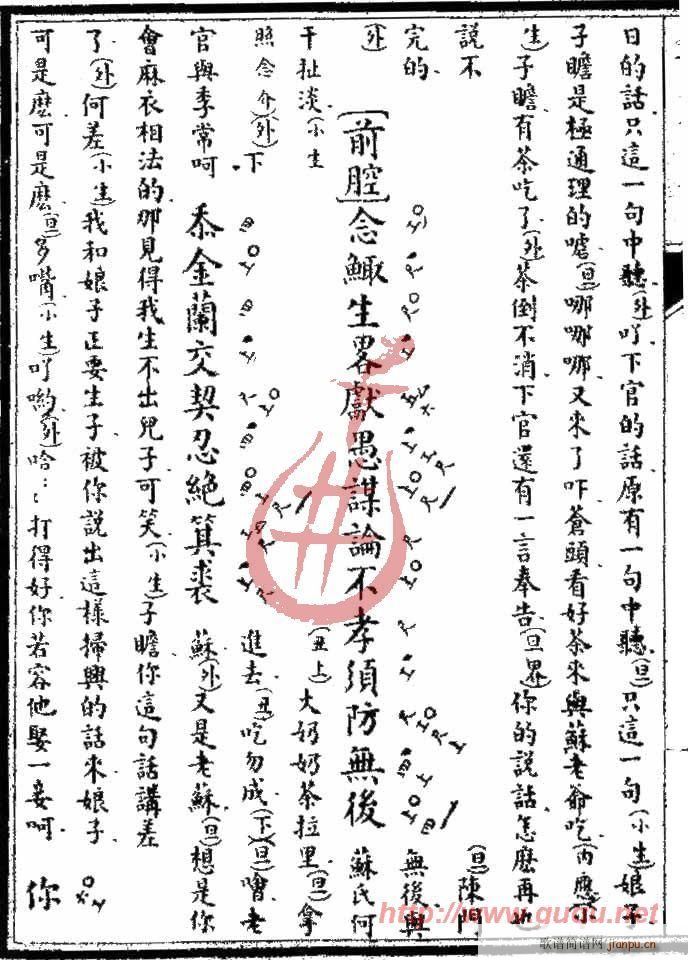 日的話只這一句中聽(外)吖下官的話原有一句中聽(旦)只這一句(小生)娘子
子瞻是極通理的嘘(旦)哪哪哪又來了吓蒼頭看好茶來與蘇老爺吃(內應介
生)子瞻有茶吃了(外)茶倒不消下官還有一言奉告(旦畧)你的說話怎麽再也
說不
(旦)陳門
完的
無後與
(外)
[前腔]念鯫生畧獻愚謀論不孝須防無後
蘇氏何
干扯淡(小生
(丑上)大奶奶茶拉里(旦)拿
照念介)(外)下
進去(丑)吃勿成(下)(旦)噲老
官與季常呵
忝金蘭交契忍絶箕裘
蘇(外)又是老蘇(旦)想是你
會麻衣相法的那見得我生不出兒子可笑(小生)子瞻你這句話講差
了(外)何差(小生)我和娘子正要生子被你說出這樣掃興的話來娘子
可是麽可是麽(旦)多嘴(小生)吖喲(外)哈:打得好你若容他娶一妾呵
你
http://www.ququ.net
歌谱简谱网
jianpu.cn